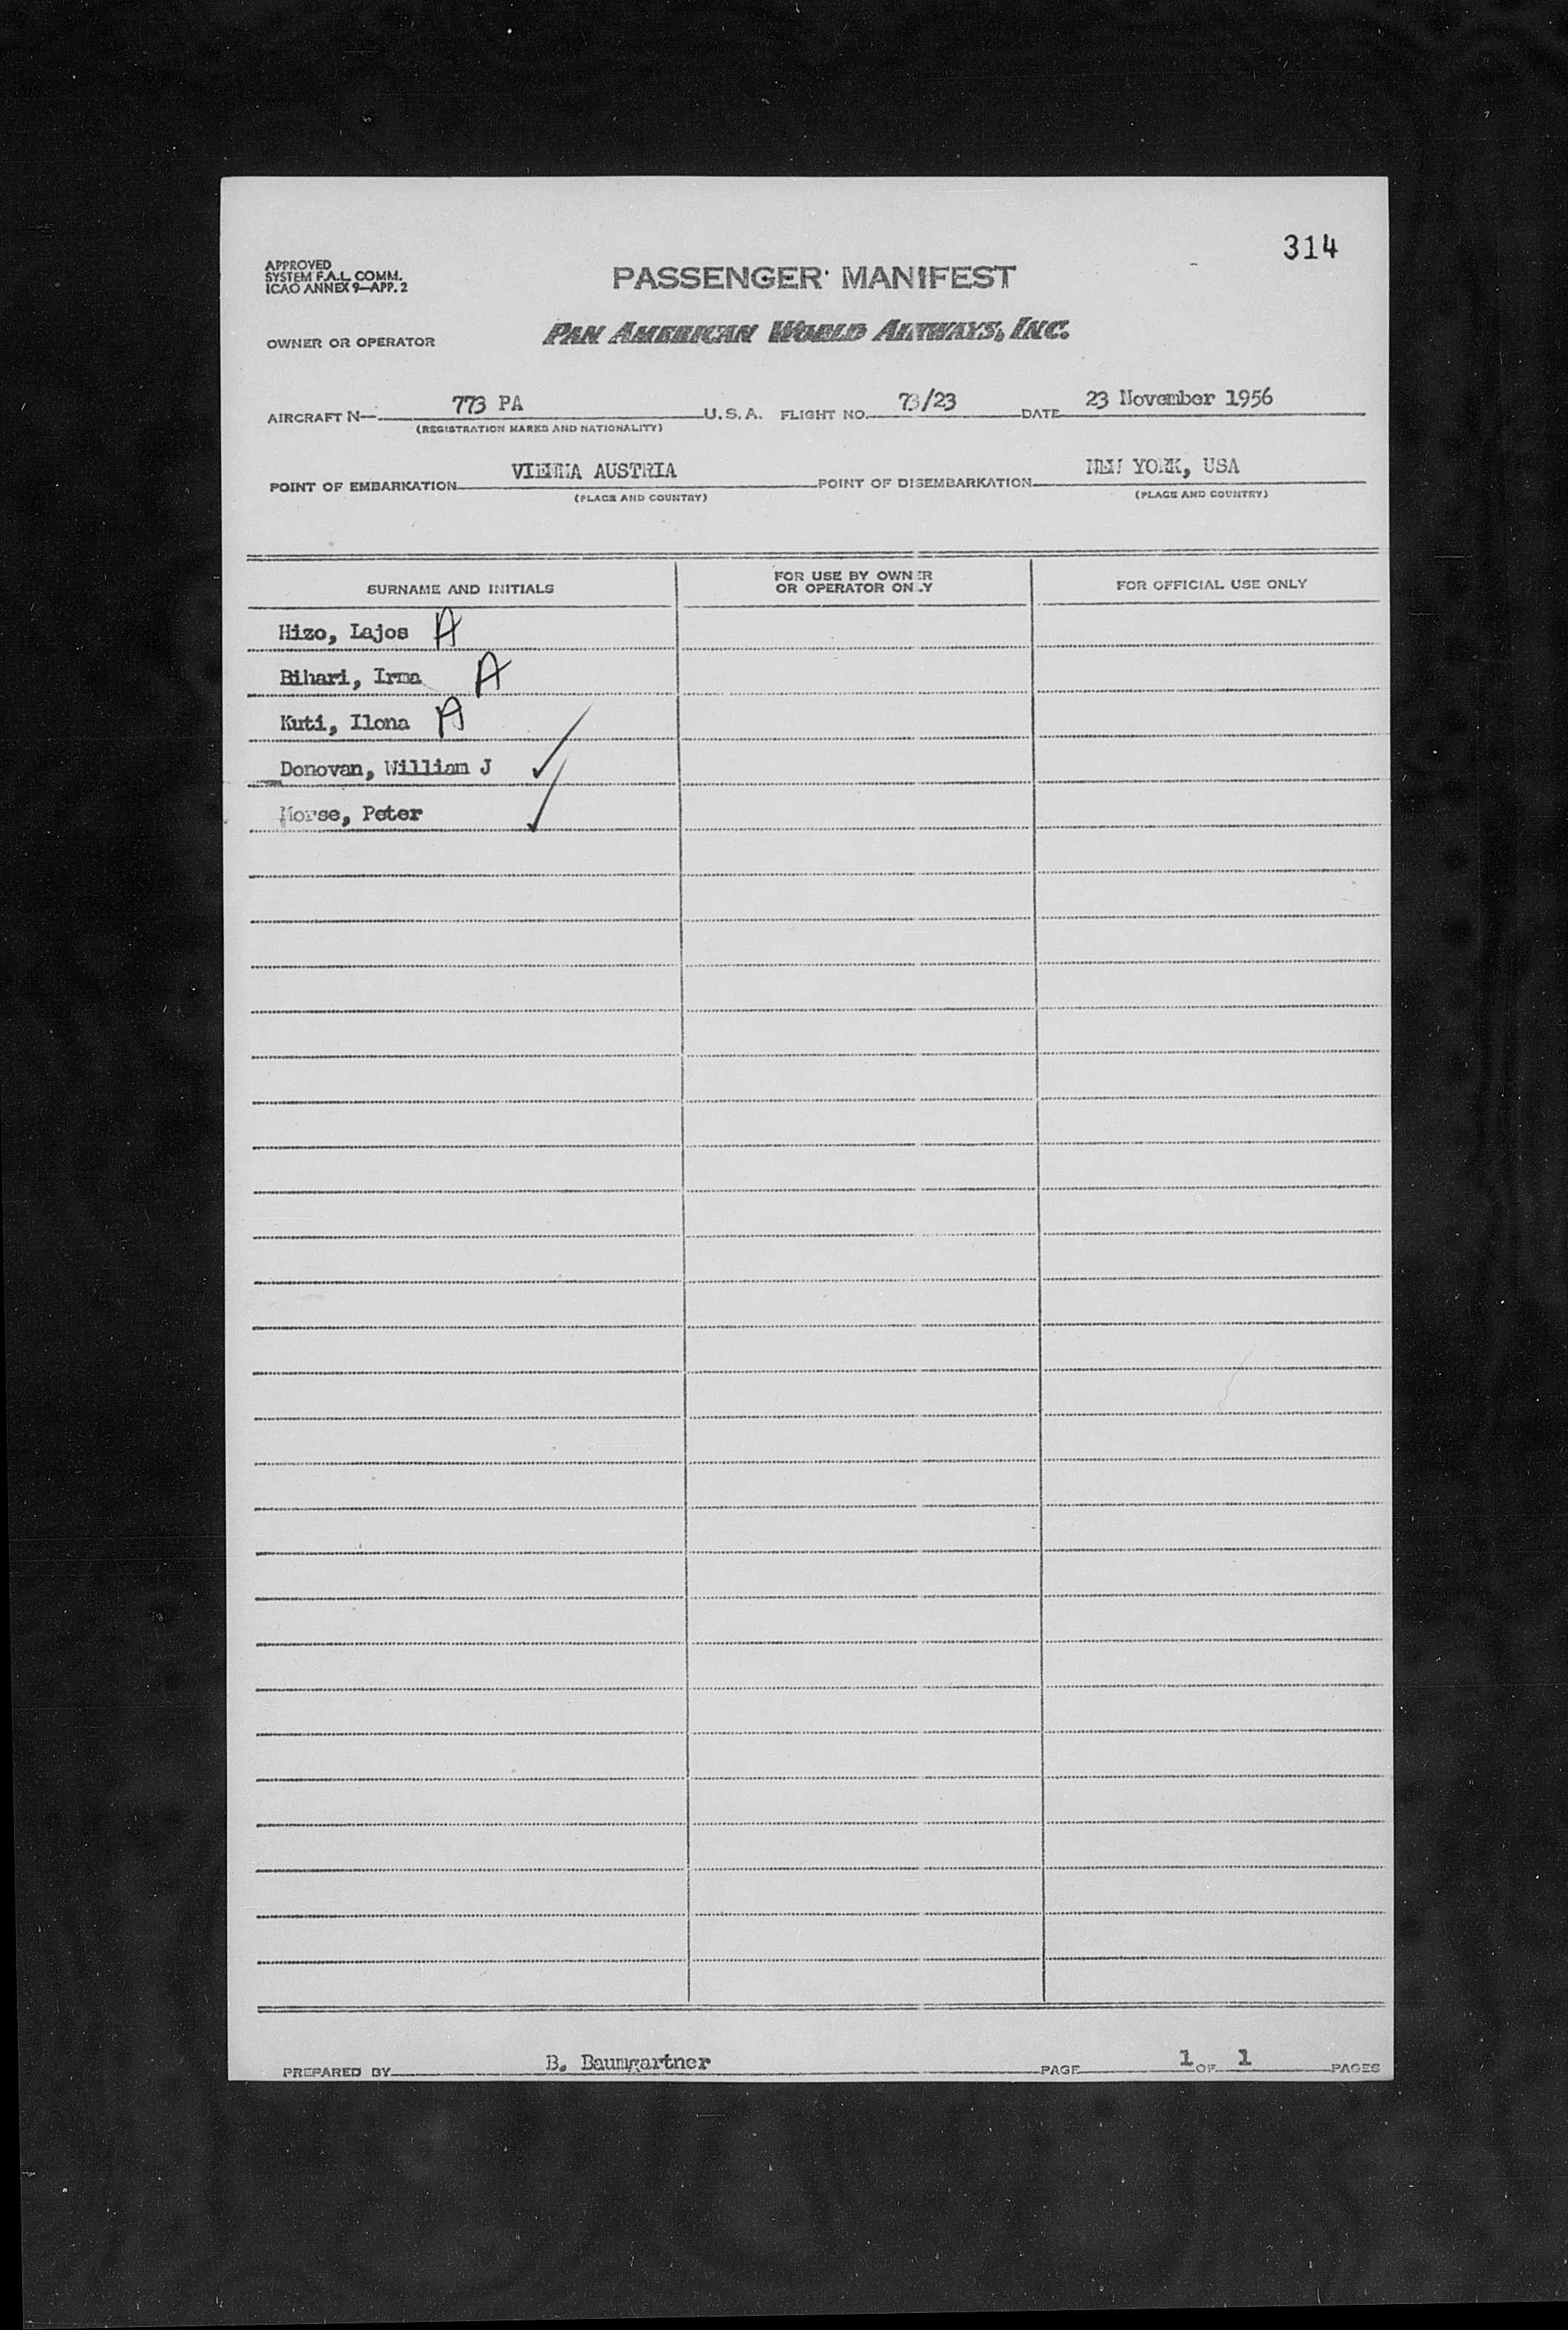 314
APPROVED
SYSTEM F.A.L. COMM.
ICAO ANNEX 9—APP. 2
PASSENGER MANIFEST
OWNER OR OPERATOR PAN AMERICAN WORLD AIRWAYS, INC.
AIRCRAFT N— 773 PA U.S.A. FLIGHT NO. 73/23 DATE 23 November 1956
(REGISTRATION MARKS AND NATIONALITY)
POINT OF EMBARKATION VIENNA AUSTRIA POINT OF DISEMBARKATION NEW YORK, USA
(PLACE AND COUNTRY) (PLACE AND COUNTRY)
SURNAME AND INITIALS FOR USE BY OWNER OR OPERATOR ONLY FOR OFFICIAL USE ONLY
Hizo, Lajos A
Bihari, Irma A
Kuti, Ilona A
Donovan, William J ✓
Morse, Peter ✓
PREPARED BY B. Baumgartner PAGE 1 OF 1 PAGES